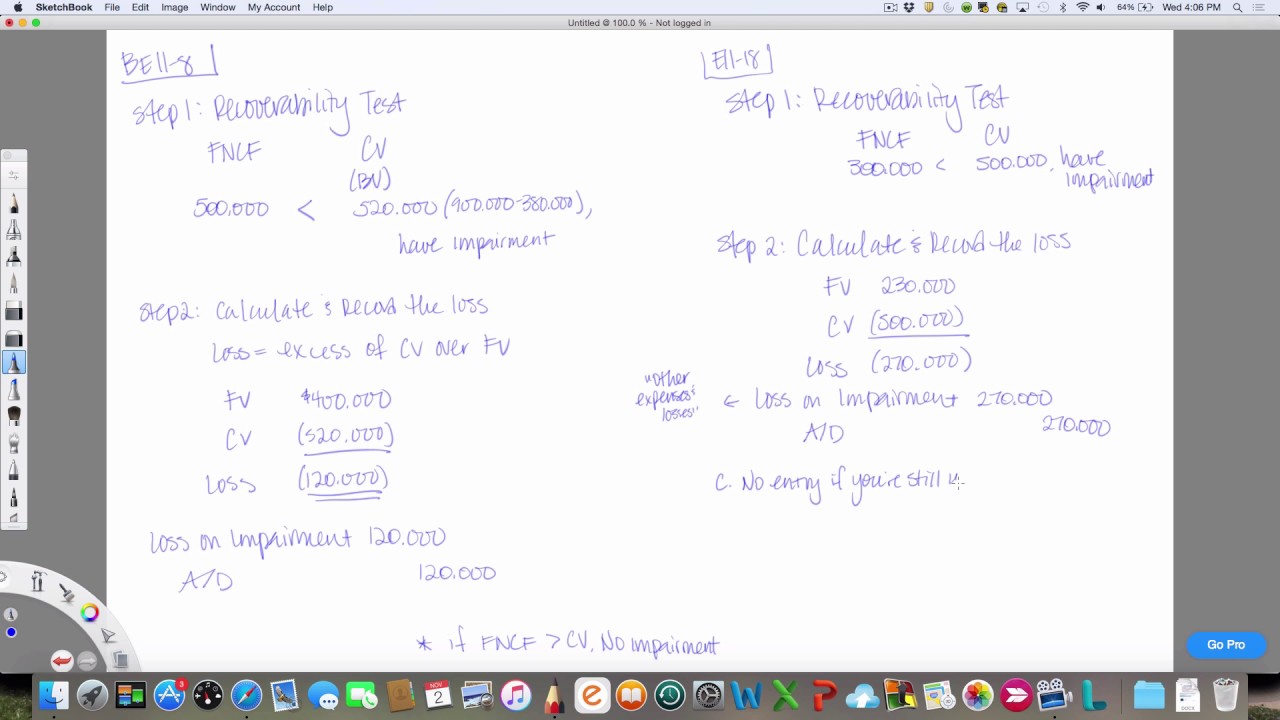 SketchBook File Edit Image Window My Account Help
64% Wed 4:06 PM
Untitled @ 100.0 % - Not logged in
BE11-8
Step 1: Recoverability Test
FNCF CV
(BV)
500.000 < 520.000 (900.000-380.000),
have impairment
Step2: Calculate & Record the loss
Loss = excess of CV over FV
FV $400.000
CV (520.000)
Loss (120.000)
Loss on Impairment 120.000
A/D 120.000
* if FNCF > CV, No impairment
E11-18
Step 1: Recoverability Test
FNCF CV
300.000 < 500.000, have
impairment
Step 2: Calculate & Record the loss
FV 230.000
CV (500.000)
Loss (270.000)
"other
expenses &
losses"
← Loss on Impairment 270.000
A/D 270.000
C. No entry if you're still
Go Pro
3
NOV
2
DOCX